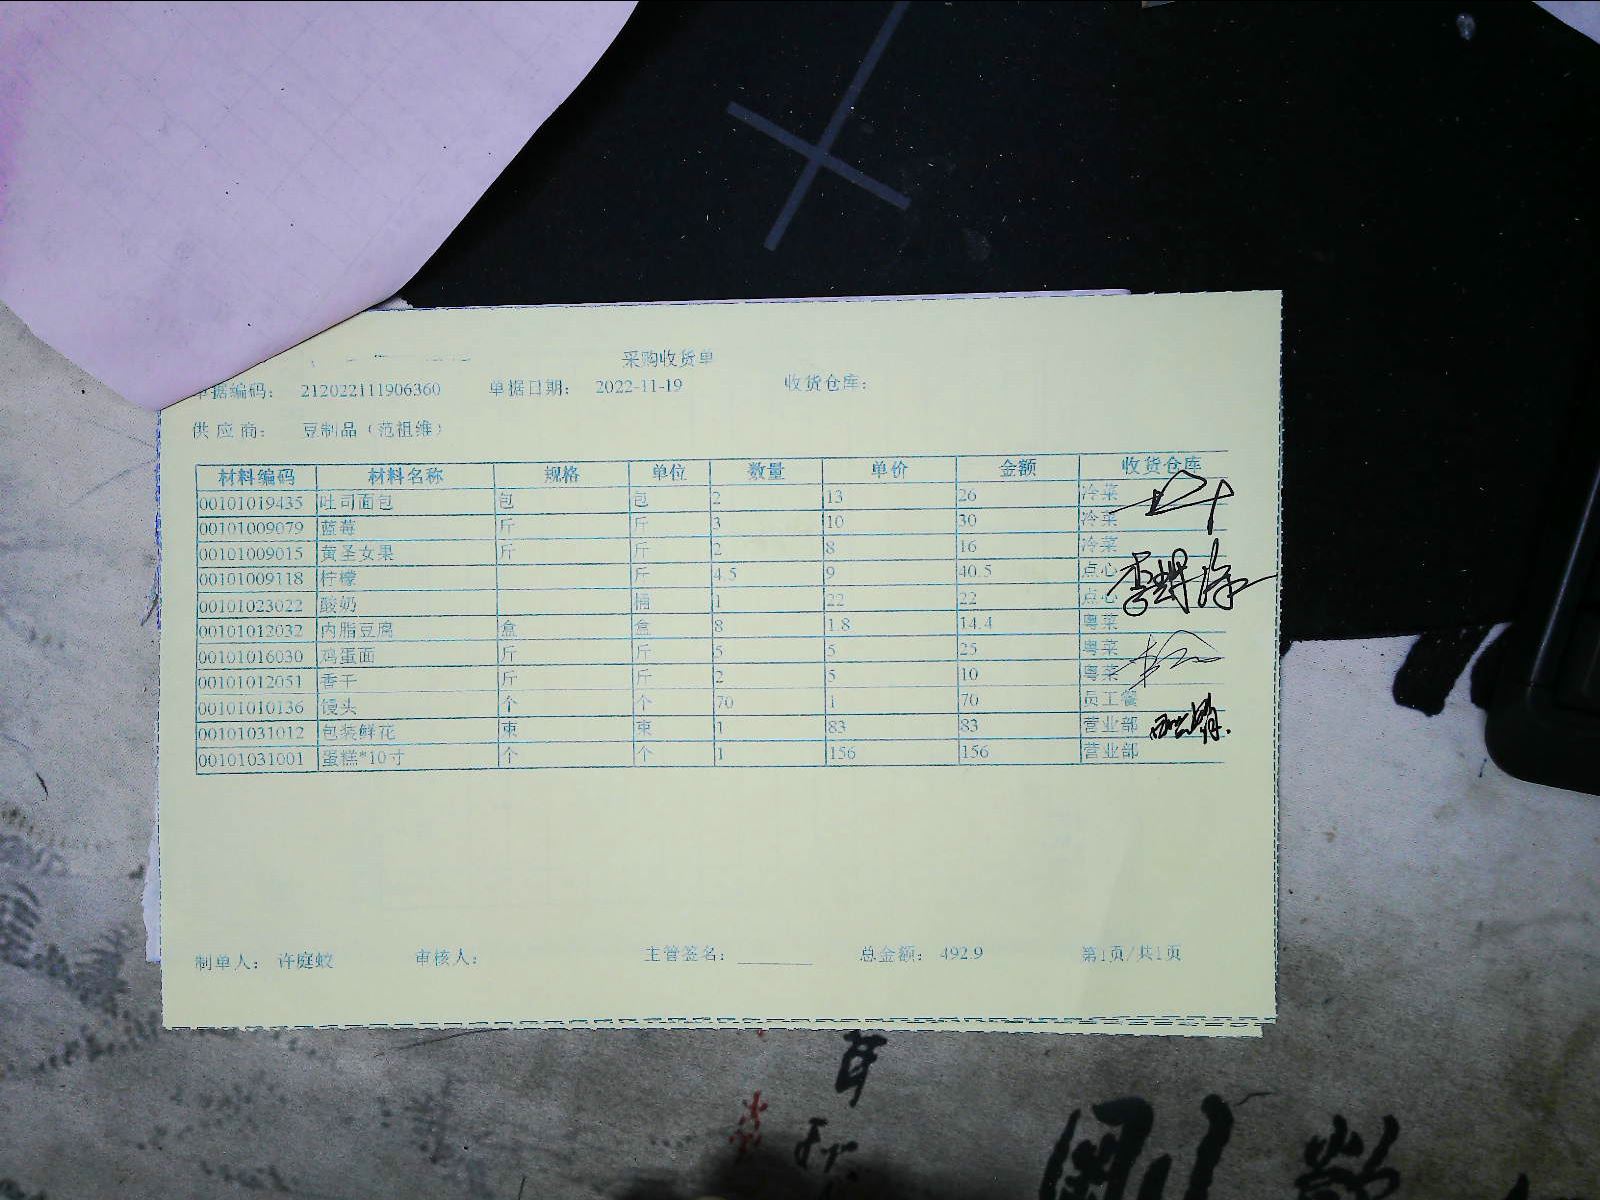 采购收货单
单据编码： 212022111906360 单据日期： 2022-11-19 收货仓库：
供应商： 豆制品（范祖维）
材料编码 材料名称 规格 单位 数量 单价 金额 收货仓库
00101019435 吐司面包 包 包 2 13 26 冷菜
00101009079 蓝莓 斤 斤 3 10 30 冷菜
00101009015 黄圣女果 斤 斤 2 8 16 冷菜
00101009118 柠檬 斤 4.5 9 40.5 点心
00101023022 酸奶 桶 1 22 22 点心
00101012032 内脂豆腐 盒 盒 8 1.8 14.4 粤菜
00101016030 鸡蛋面 斤 斤 5 5 25 粤菜
00101012051 香干 斤 斤 2 5 10 粤菜
00101010136 馒头 个 个 70 1 70 员工餐
00101031012 包装鲜花 束 束 1 83 83 营业部
00101031001 蛋糕*10寸 个 个 1 156 156 营业部
制单人： 许庭蛟 审核人： 主管签名： 总金额： 492.9 第1页/共1页